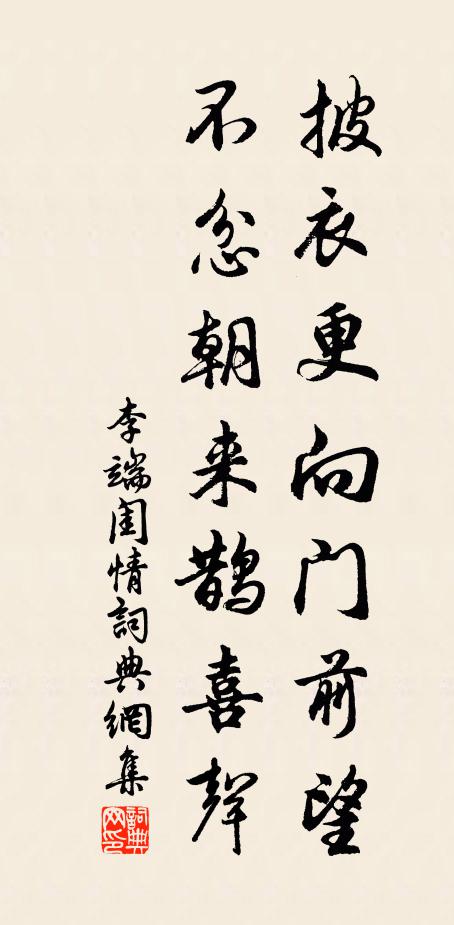 披衣更向门前望
不忿朝来鹊喜聲
李端闺情詞典網集
詞典网印